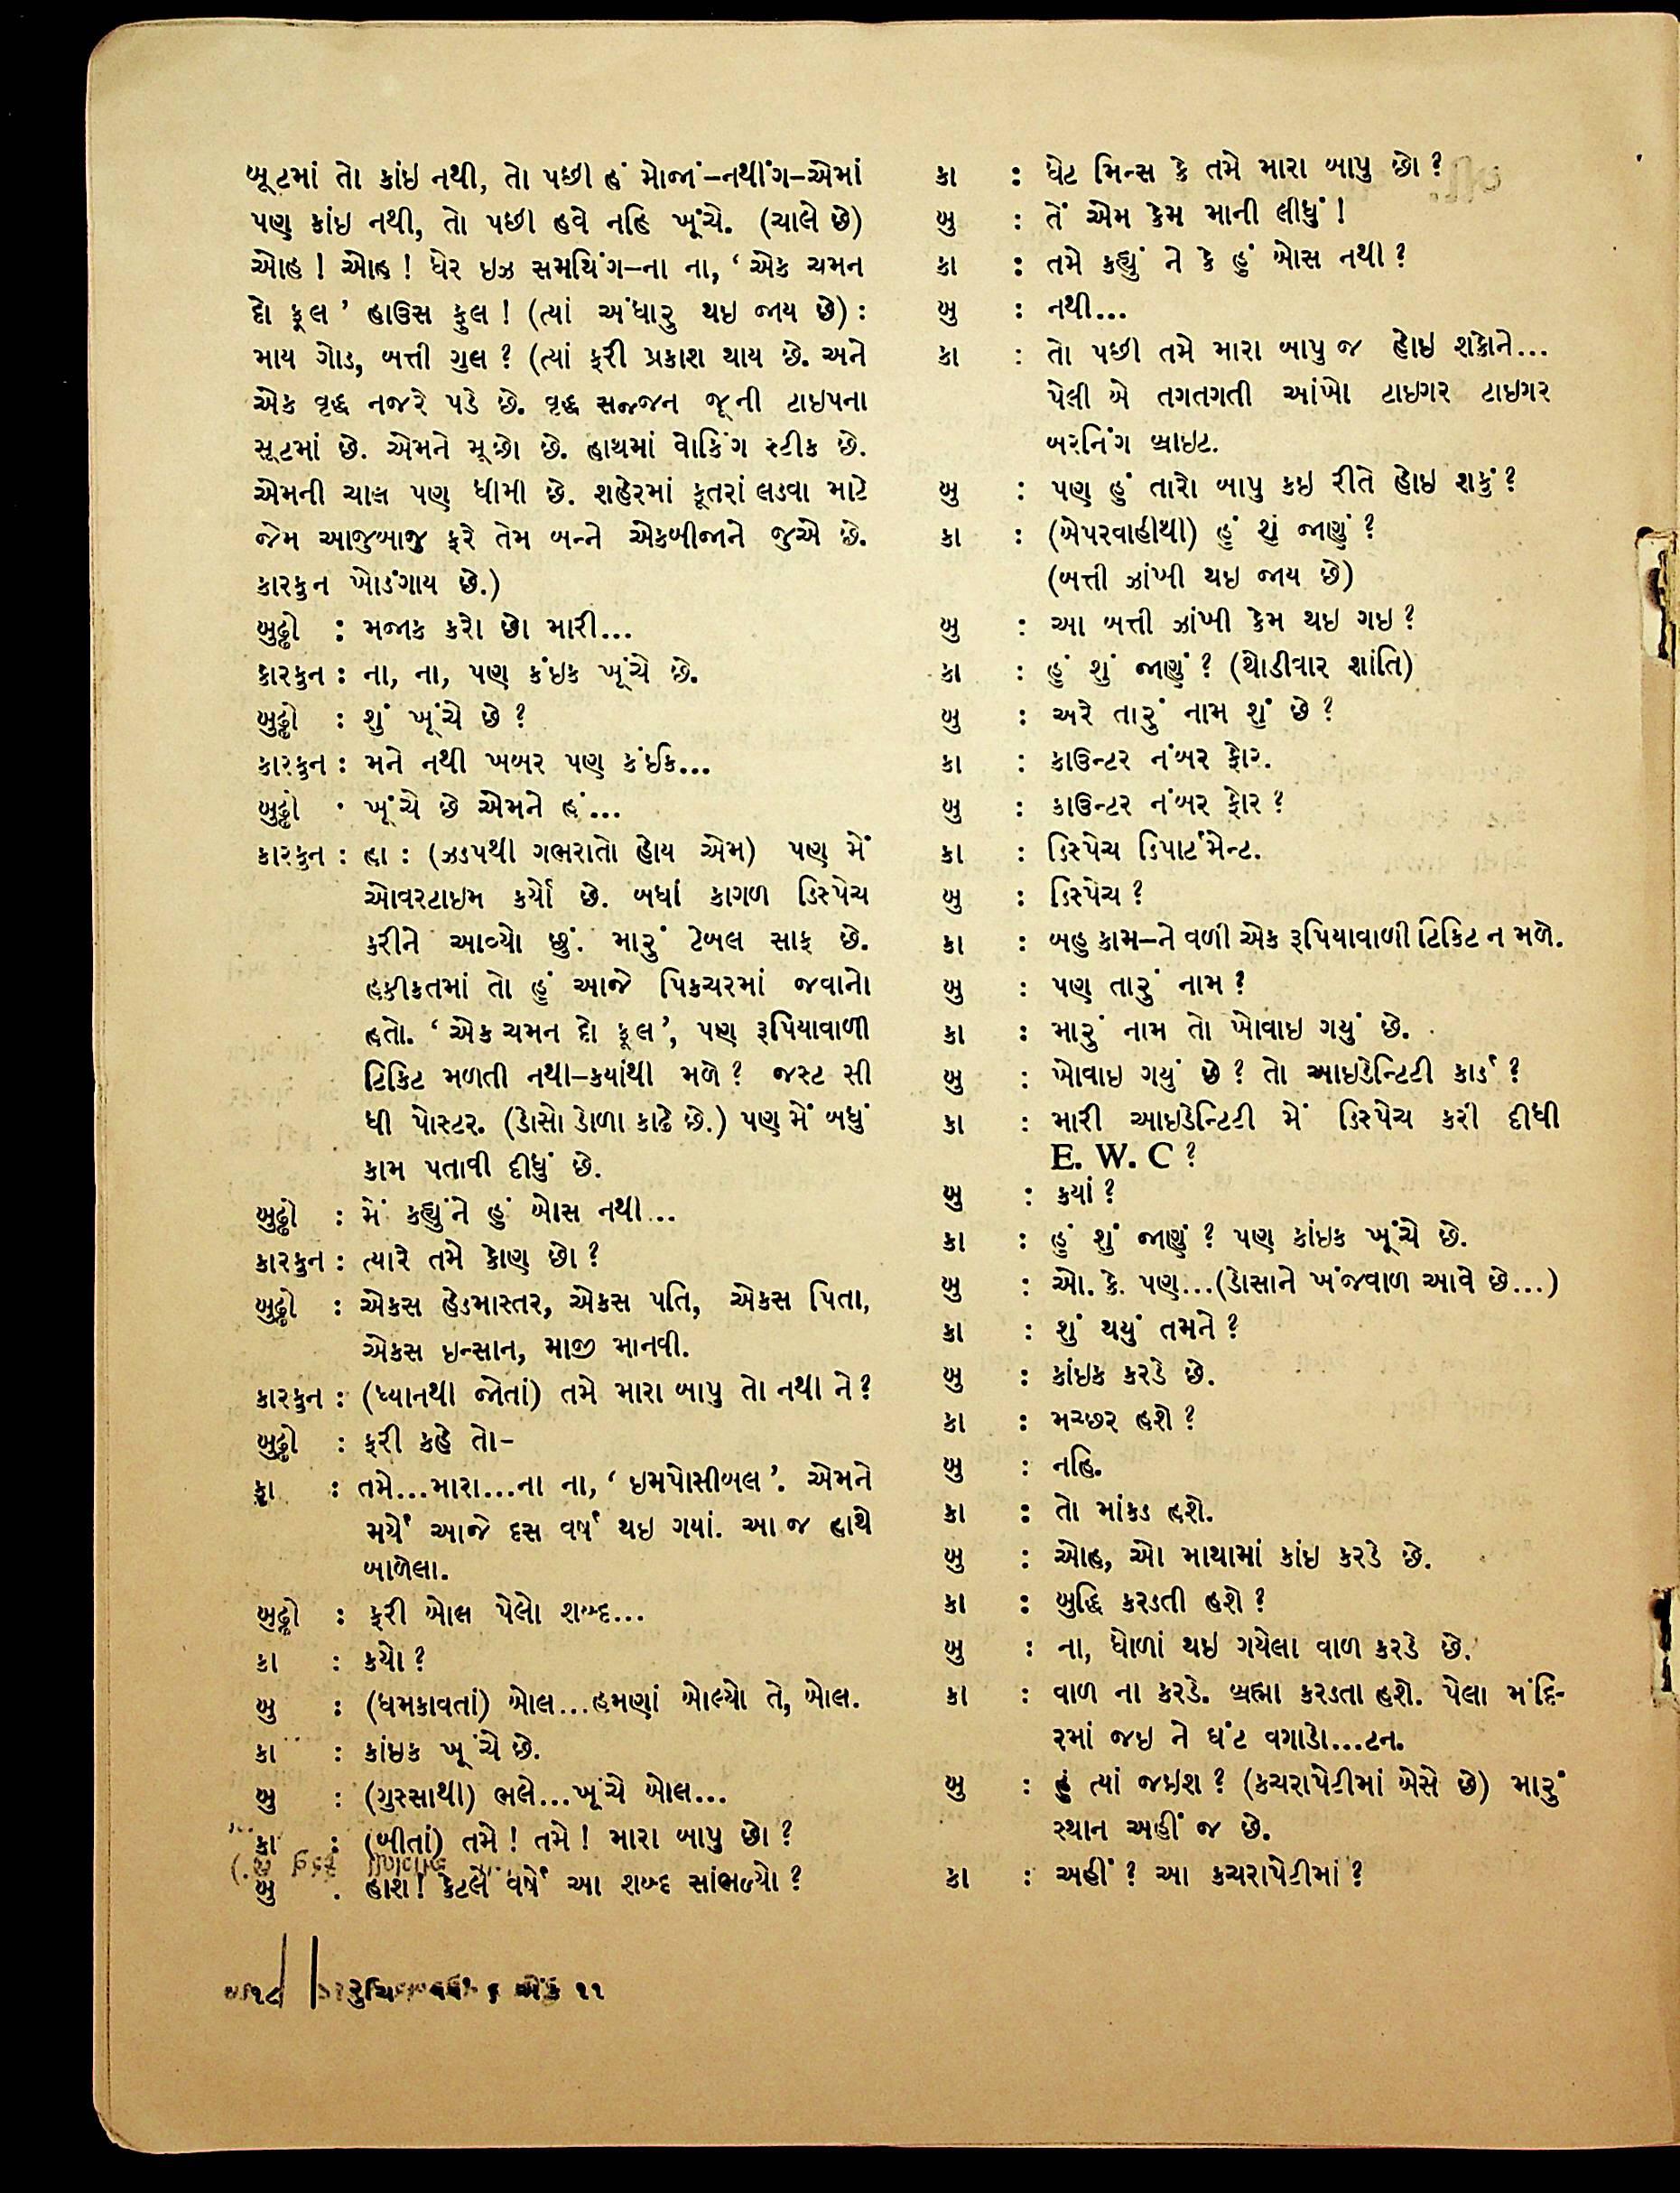 બૂટમાં તો કાંઇ નથી, તો પછી હં મોજાં–નથીંગ–એમાં
પણ કાંઇ નથી, તો પછી હવે નહિ ખૂંચે. (ચાલે છે)
ઓહ ! ઓહ ! ધેર ઇઝ સમથિંગ–ના ના, ‘ એક ચમન
દો ફૂલ ’ હાઉસ ફુલ ! (ત્યાં અંધારુ થઇ જાય છે) :
માય ગોડ, બત્તી ગુલ ? (ત્યાં ફરી પ્રકાશ થાય છે. અને
એક વૃદ્ધ નજરે પડે છે. વૃદ્ધ સજ્જન જૂની ટાઇપના
સૂટમાં છે. એમને મૂછો છે. હાથમાં વોકિંગ સ્ટીક છે.
એમની ચાલ પણ ધીમી છે. શહેરમાં કૂતરાં લડવા માટે
જેમ આજુબાજુ ફરે તેમ બન્ને એકબીજાને જુએ છે.
કારકુન ખોડંગાય છે.)
બુઢ્ઢો : મજાક કરો છો મારી...
કારકુન : ના, ના, પણ કંઇક ખૂંચે છે.
બુઢ્ઢો : શું ખૂંચે છે ?
કારકુન : મને નથી ખબર પણ કંઈક...
બુઢ્ઢો : ખૂંચે છે એમને હં...
કારકુન : હા : (ઝડપથી ગભરાતો હોય એમ) પણ મેં
ઓવરટાઇમ કર્યો છે. બધાં કાગળ ડિસ્પેચ
કરીને આવ્યો છું. મારું ટેબલ સાફ છે.
હકીકતમાં તો હું આજે પિકચરમાં જવાનો
હતો. ‘ એક ચમન દો ફૂલ ’, પણ રૂપિયાવાળી
ટિકિટ મળતી નથી–કયાંથી મળે ? જસ્ટ સી
ધી પોસ્ટર. (ડોસો ડોળા કાઢે છે.) પણ મેં બધું
કામ પતાવી દીધું છે.
બુઢ્ઢો : મેં કહ્યુંને હું બોસ નથી...
કારકુન : ત્યારે તમે કોણ છો ?
બુઢ્ઢો : એકસ હેડમાસ્તર, એકસ પતિ, એકસ પિતા,
એકસ ઇન્સાન, માજી માનવી.
કારકુન : (ધ્યાનથી જોતાં) તમે મારા બાપુ તો નથી ને ?
બુઢ્ઢો : ફરી કહે તો–
કા : તમે...મારા...ના ના, ‘ ઇમપોસીબલ ’. એમને
મર્યે આજે દસ વર્ષ થઇ ગયાં. આ જ હાથે
બાળેલા.
બુઢ્ઢો : ફરી બોલ પેલો શબ્દ...
કા : કયો ?
બુ : (ધમકાવતાં) બોલ...હમણાં બોલ્યો તે, બોલ.
કા : કાંઇક ખૂંચે છે.
બુ : (ગુસ્સાથી) ભલે...ખૂંચે બોલ...
કા : (બીતાં) તમે ! તમે ! મારા બાપુ છો ?
બુ : હાશ ! કેટલે વર્ષે આ શબ્દ સાંભળ્યો ?
કા : ધેટ મિન્સ કે તમે મારા બાપુ છો ?
બુ : તેં એમ કેમ માની લીધું !
કા : તમે કહ્યું ને કે હું બોસ નથી ?
બુ : નથી...
કા : તો પછી તમે મારા બાપુ જ હોઇ શકોને...
પેલી એ તગતગતી આંખો ટાઇગર ટાઇગર
બરનિંગ બ્રાઇટ.
બુ : પણ હું તારો બાપુ કઇ રીતે હોઇ શકું ?
કા : (બેપરવાહીથી) હું શું જાણું ?
(બત્તી ઝાંખી થઇ જાય છે)
બુ : આ બત્તી ઝાંખી કેમ થઇ ગઇ ?
કા : હું શું જાણું ? (થોડીવાર શાંતિ)
બુ : અરે તારું નામ શું છે ?
કા : કાઉન્ટર નંબર ફોર.
બુ : કાઉન્ટર નંબર ફોર ?
કા : ડિસ્પેચ ડિપાર્ટમેન્ટ.
બુ : ડિસ્પેચ ?
કા : બહુ કામ–ને વળી એક રૂપિયાવાળી ટિકિટ ન મળે.
બુ : પણ તારું નામ ?
કા : મારું નામ તો ખોવાઇ ગયું છે.
બુ : ખોવાઇ ગયું છે ? તો આઇડેન્ટિટી કાર્ડ ?
કા : મારી આઇડેન્ટિટી મેં ડિસ્પેચ કરી દીધી
E. W. C ?
બુ : કયાં ?
કા : હું શું જાણું ? પણ કાંઇક ખૂંચે છે.
બુ : ઓ. કે. પણ...(ડોસાને ખંજવાળ આવે છે...)
કા : શું થયું તમને ?
બુ : કાંઇક કરડે છે.
કા : મચ્છર હશે ?
બુ : નહિ.
કા : તો માંકડ હશે.
બુ : ઓહ, ઓ માથામાં કાંઇ કરડે છે.
કા : બુદ્ધિ કરડતી હશે ?
બુ : ના, ધોળાં થઇ ગયેલા વાળ કરડે છે.
કા : વાળ ના કરડે. બ્રહ્મા કરડતા હશે. પેલા મંદિ-
રમાં જઇ ને ઘંટ વગાડો...ટન.
બુ : હું ત્યાં જઇશ ? (કચરાપેટીમાં બેસે છે) મારું
સ્થાન અહીં જ છે.
કા : અહીં ? આ કચરાપેટીમાં ?
૧૮ | રુચિ વર્ષ અંક ૧૧